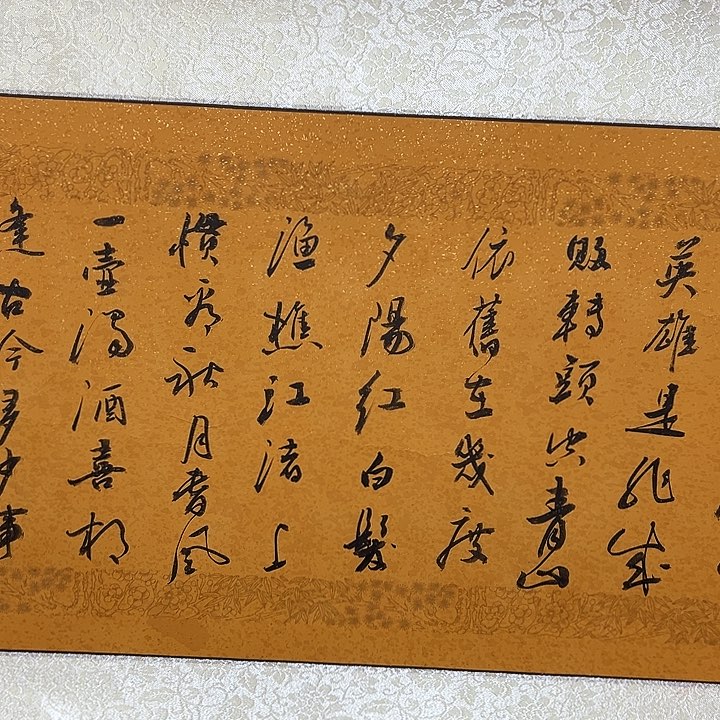 英雄是非成
敗轉頭空青山
依舊在幾度
夕陽紅白髮
漁樵江渚上
慣看秋月春風
一壺濁酒喜相
逢古今多少事